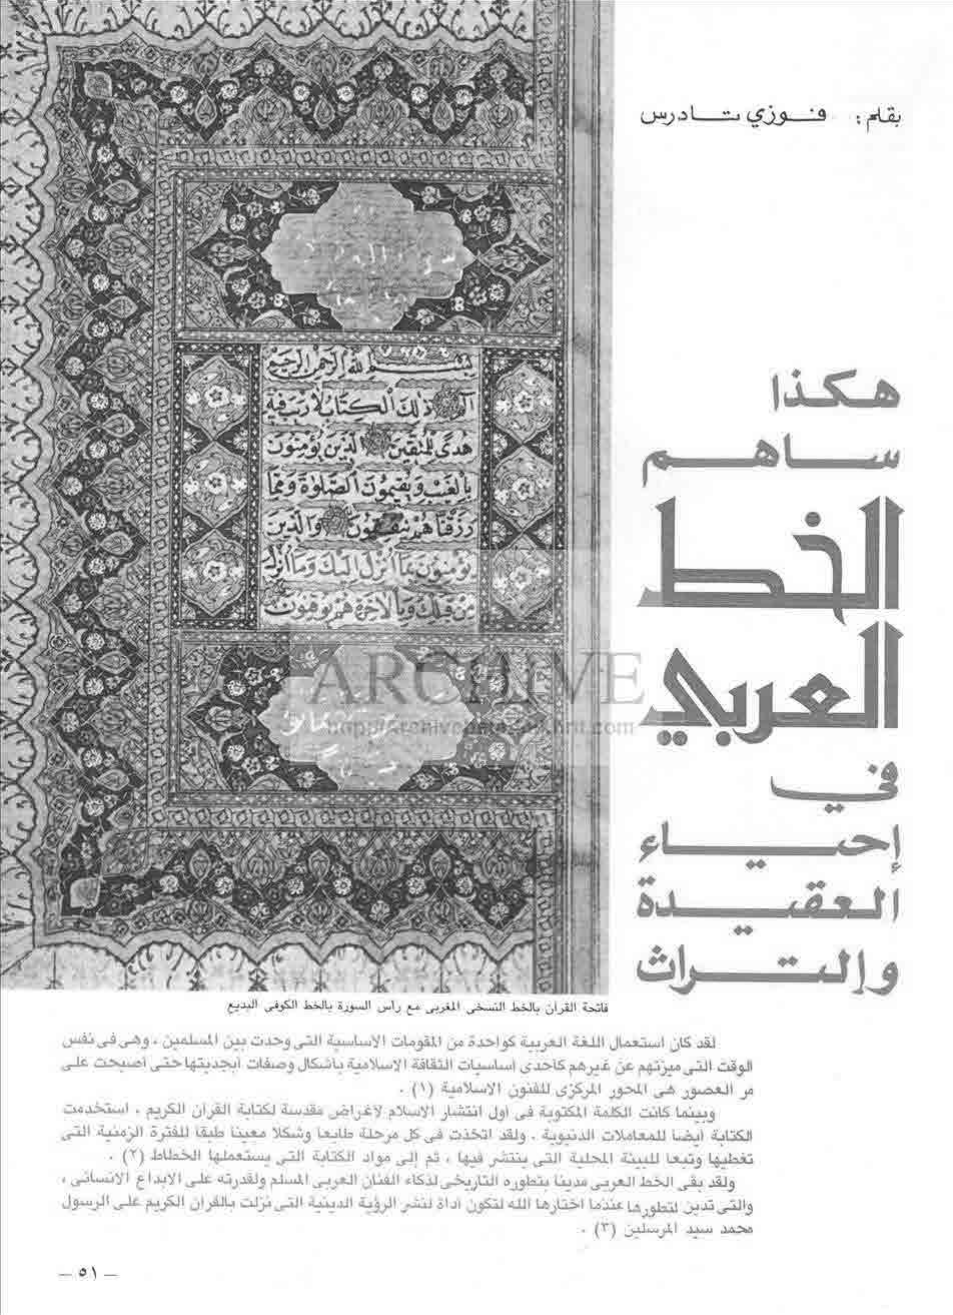 بقلم : فوزي تادرس
هكذا
ساهم
الخط
العربي
في
إحياء
العقيدة
والتراث
بسم الله الرحمن الرحيم
الم ذلك الكتاب لا ريب فيه
هدى للمتقين الذين يؤمنون
بالغيب ويقيمون الصلوة ومما
رزقناهم ينفقون والذين
يؤمنون بما أنزل إليك وما أنزل
من قبلك وبالآخرة هم يوقنون
ARCHIVE
فاتحة القرآن بالخط النسخى المغربى مع رأس السورة بالخط الكوفى البديع
لقد كان استعمال اللغة العربية كواحدة من المقومات الاساسية التى وحدت بين المسلمين ، وهى فى نفس
الوقت التى ميزتهم عن غيرهم كاحدى اساسيات الثقافة الاسلامية باشكال وصفات ابجديتها حتى اصبحت على
مر العصور هى المحور المركزى للفنون الاسلامية (١) .
وبينما كانت الكلمة المكتوبة فى اول انتشار الاسلام لاغراض مقدسة لكتابة القرآن الكريم ، استخدمت
الكتابة ايضا للمعاملات الدنيوية ، ولقد اتخذت فى كل مرحلة طابعا وشكلا معينا طبقا للفترة الزمنية التى
تغطيها وتبعا للبيئة المحلية التى ينتشر فيها ، ثم إلى مواد الكتابة التى يستعملها الخطاط (٢) .
ولقد بقى الخط العربى مدينا بتطوره التاريخى لذكاء الفنان العربى المسلم ولقدرته على الابداع الانسانى ،
والتى تدين لتطورها عندما اختارها الله لتكون اداة لنشر الرؤية الدينية التى نزلت بالقرآن الكريم على الرسول
محمد سيد المرسلين (٣) .
— ٥١ —